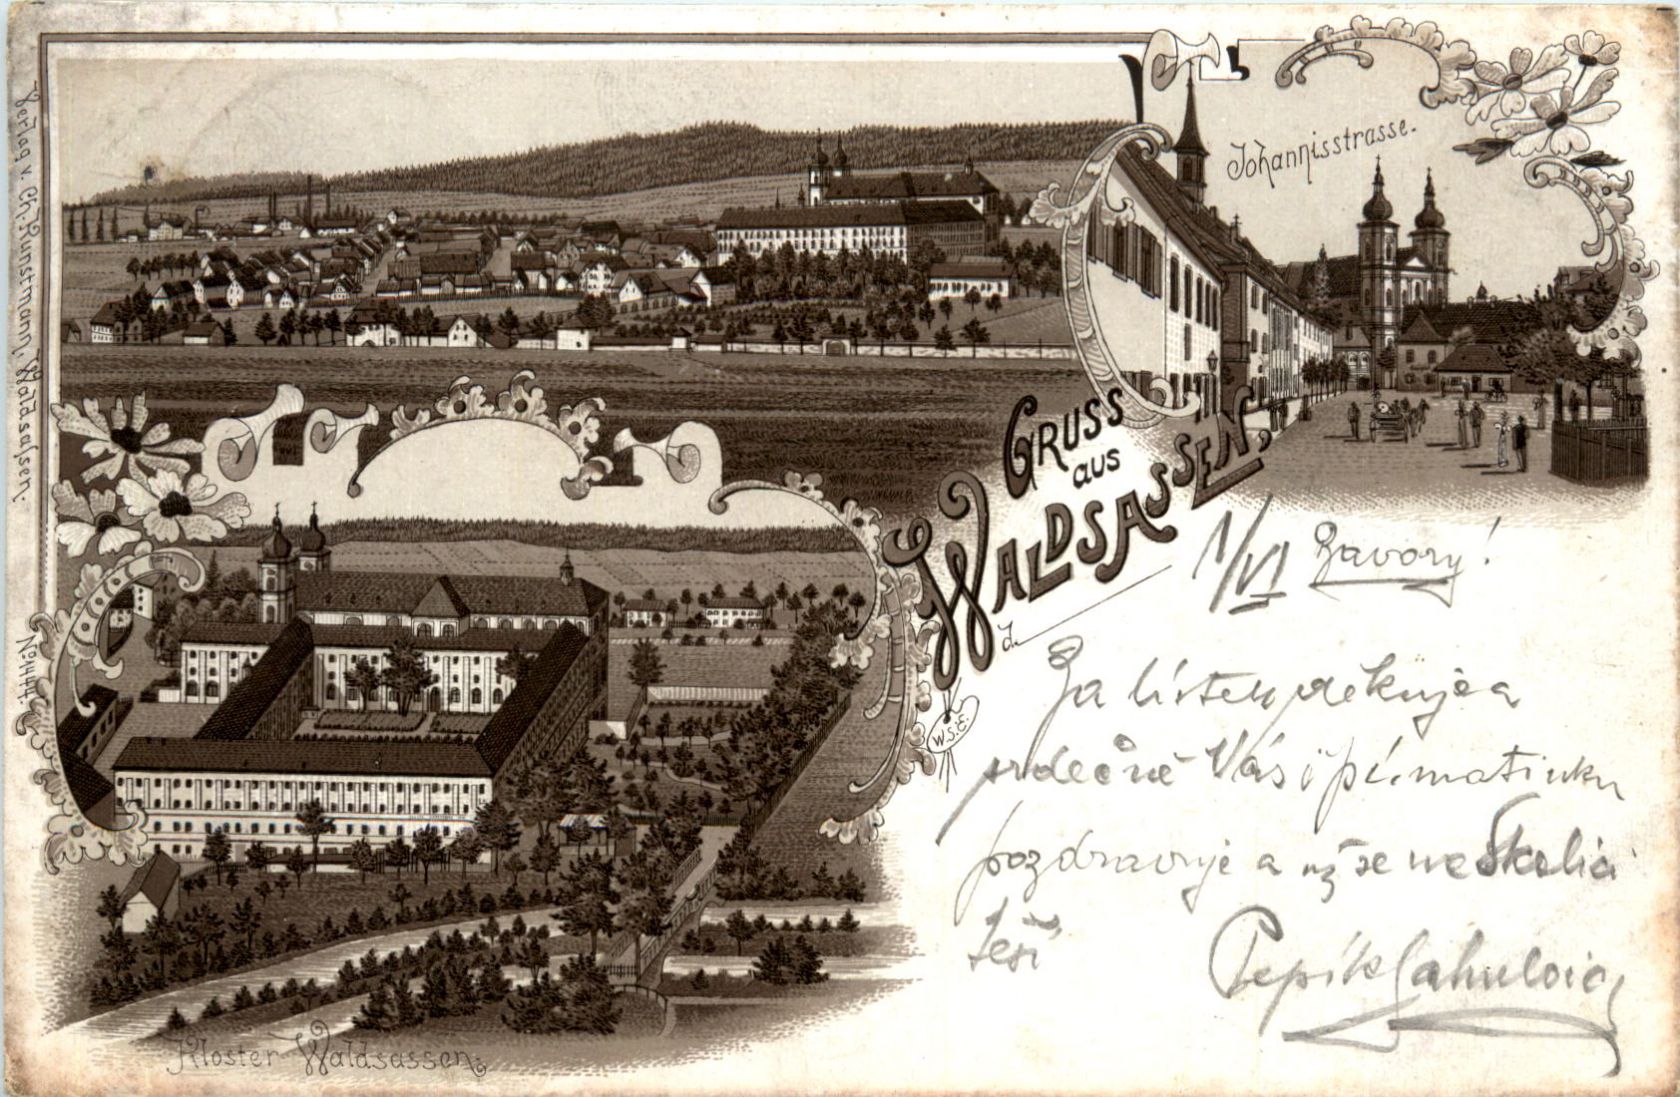 Verlag v. Ch. Funstmann, Waldsassen.
No 4447.
Johannisstrasse.
GRUSS
aus
WALDSASSEN,
d.
W.S.E.
Kloster Waldsassen.
1/VI Zavory!
Za lístek děkuje a
srdečně Vás i pí. matinku
pozdravuje a už se na
těší
Pepík